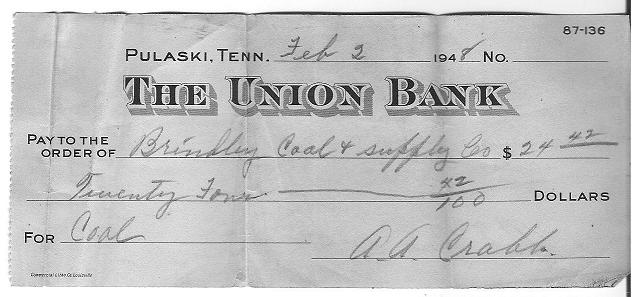 87-136
PULASKI, TENN. Feb 2 1948 NO.
THE UNION BANK
PAY TO THE ORDER OF Brindley Coal & supply Co $ 24 42
Twenty Four 42/100 DOLLARS
FOR Coal A.A. Crabb.
Commercial Litho Co Louisville